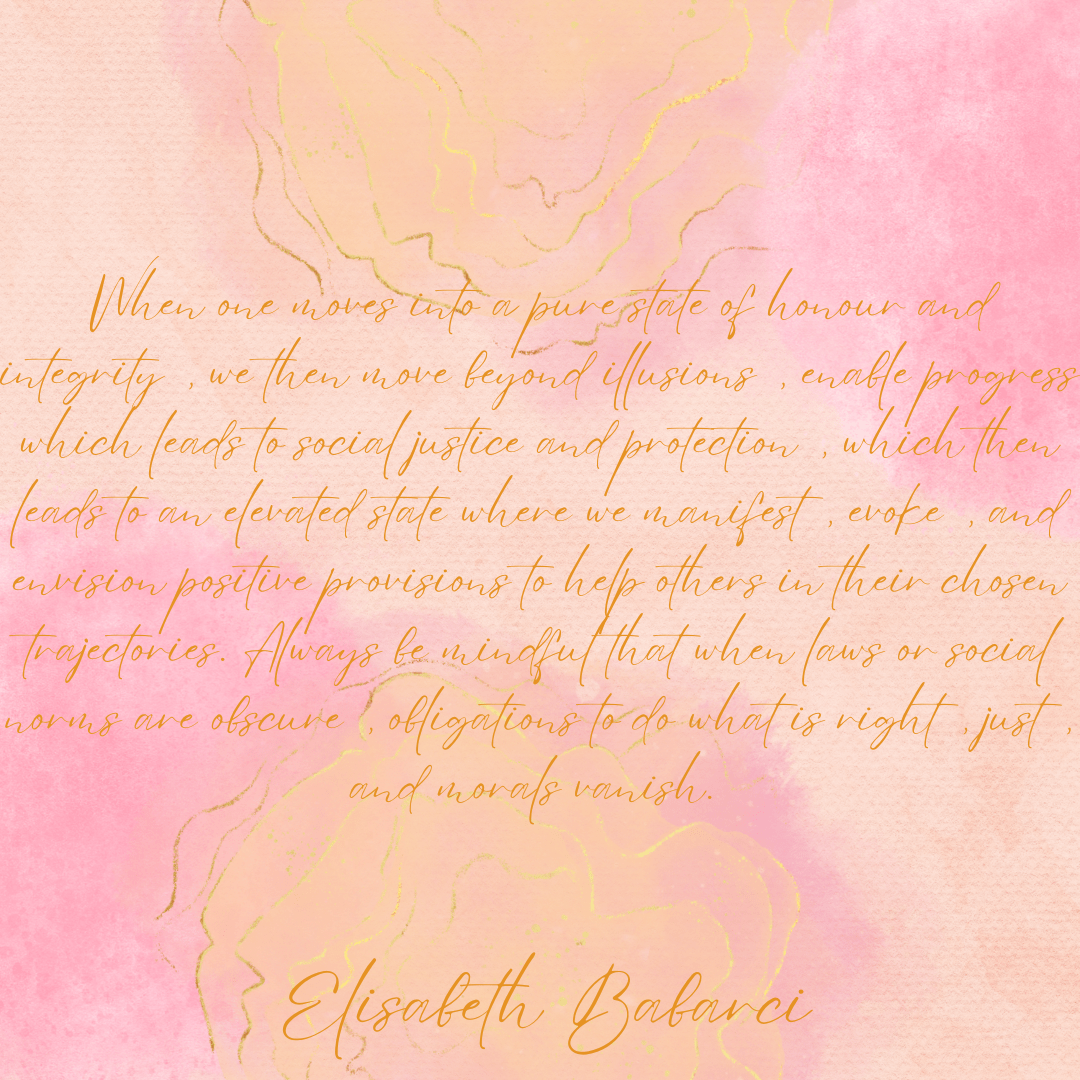 When one moves into a pure state of honour and
integrity , we then move beyond illusions , enable progress
which leads to social justice and protection , which then
leads to an elevated state where we manifest , evoke , and
envision positive provisions to help others in their chosen
trajectories. Always be mindful that when laws or social
norms are obscure , obligations to do what is right , just ,
and morals vanish.
Elisabeth Babarci